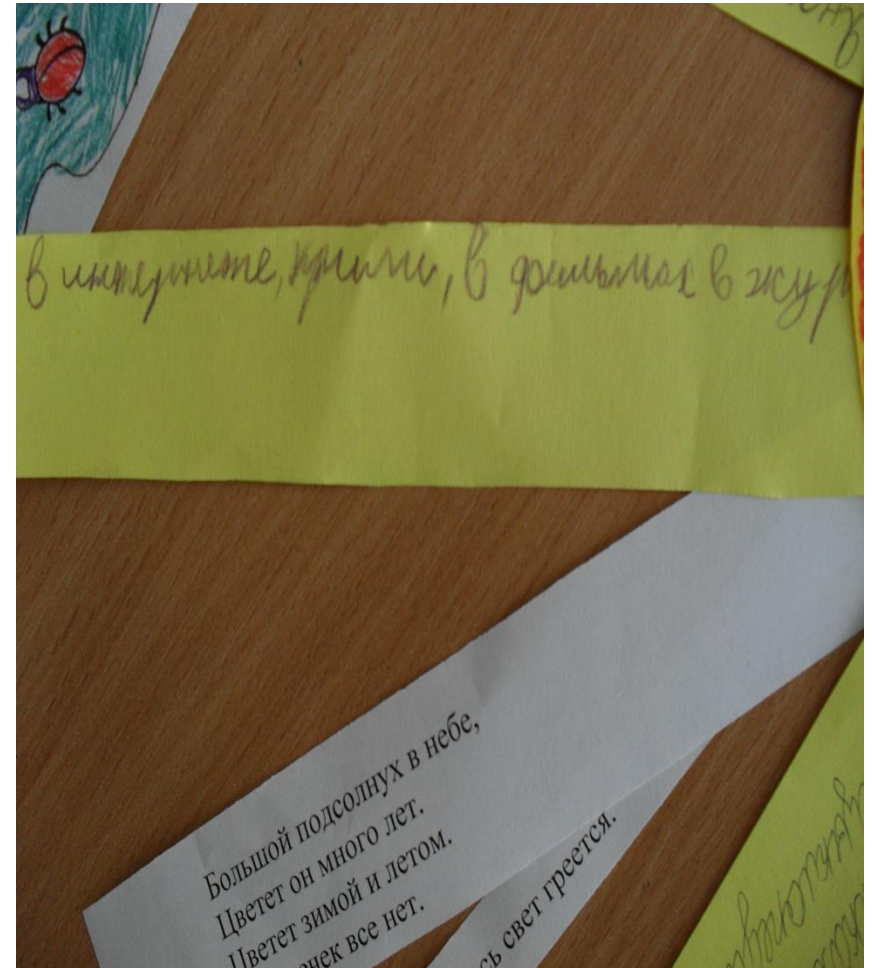 в интернете, книги, в фильмах в жур
Большой подсолнух в небе,
Цветет он много лет.
Цветет зимой и летом.
нек все нет.
сь свет греется.